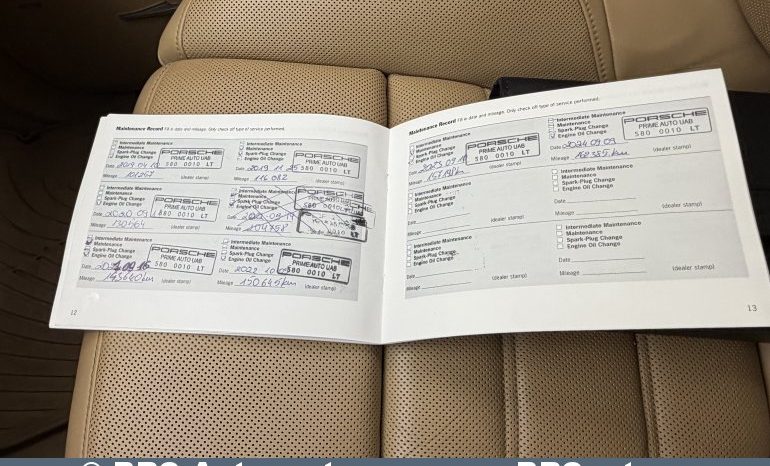 Maintenance Record Fill in date and mileage. Only check off type of service performed.
Intermediate Maintenance
Maintenance
Spark-Plug Change
Engine Oil Change
PORSCHE
PRIME AUTO UAB
580 0010 LT
Date
Mileage
(dealer stamp)
Intermediate Maintenance
Maintenance
Spark-Plug Change
Engine Oil Change
PORSCHE
PRIME AUTO UAB
580 0010 LT
Date 2019 11 25
Mileage 116 082
(dealer stamp)
Intermediate Maintenance
Maintenance
Spark-Plug Change
Engine Oil Change
PORSCHE
PRIME AUTO UAB
580 0010 LT
Date
Mileage 130964
(dealer stamp)
Intermediate Maintenance
Maintenance
Spark-Plug Change
Engine Oil Change
PORSCHE
Date
Mileage
Intermediate Maintenance
Maintenance
Spark-Plug Change
Engine Oil Change
PORSCHE
PRIME AUTO UAB
580 0010 LT
Date
Mileage
(dealer stamp)
Intermediate Maintenance
Maintenance
Spark-Plug Change
Engine Oil Change
PORSCHE
PRIME AUTO UAB
580 0010 LT
Date 2022 10
Mileage 150645km
(dealer stamp)
12
Maintenance Record Fill in date and mileage. Only check off type of service performed.
Intermediate Maintenance
Maintenance
Spark-Plug Change
Engine Oil Change
PORSCHE
PRIME AUTO UAB
580 0010 LT
Date
Mileage
(dealer stamp)
Intermediate Maintenance
Maintenance
Spark-Plug Change
Engine Oil Change
PORSCHE
PRIME AUTO UAB
580 0010 LT
Date 2024 09 09
Mileage
(dealer stamp)
Intermediate Maintenance
Maintenance
Spark-Plug Change
Engine Oil Change
Date
Mileage
(dealer stamp)
Intermediate Maintenance
Maintenance
Spark-Plug Change
Engine Oil Change
Date
Mileage
(dealer stamp)
Intermediate Maintenance
Maintenance
Spark-Plug Change
Engine Oil Change
Date
Mileage
(dealer stamp)
Intermediate Maintenance
Maintenance
Spark-Plug Change
Engine Oil Change
Date
Mileage
(dealer stamp)
13